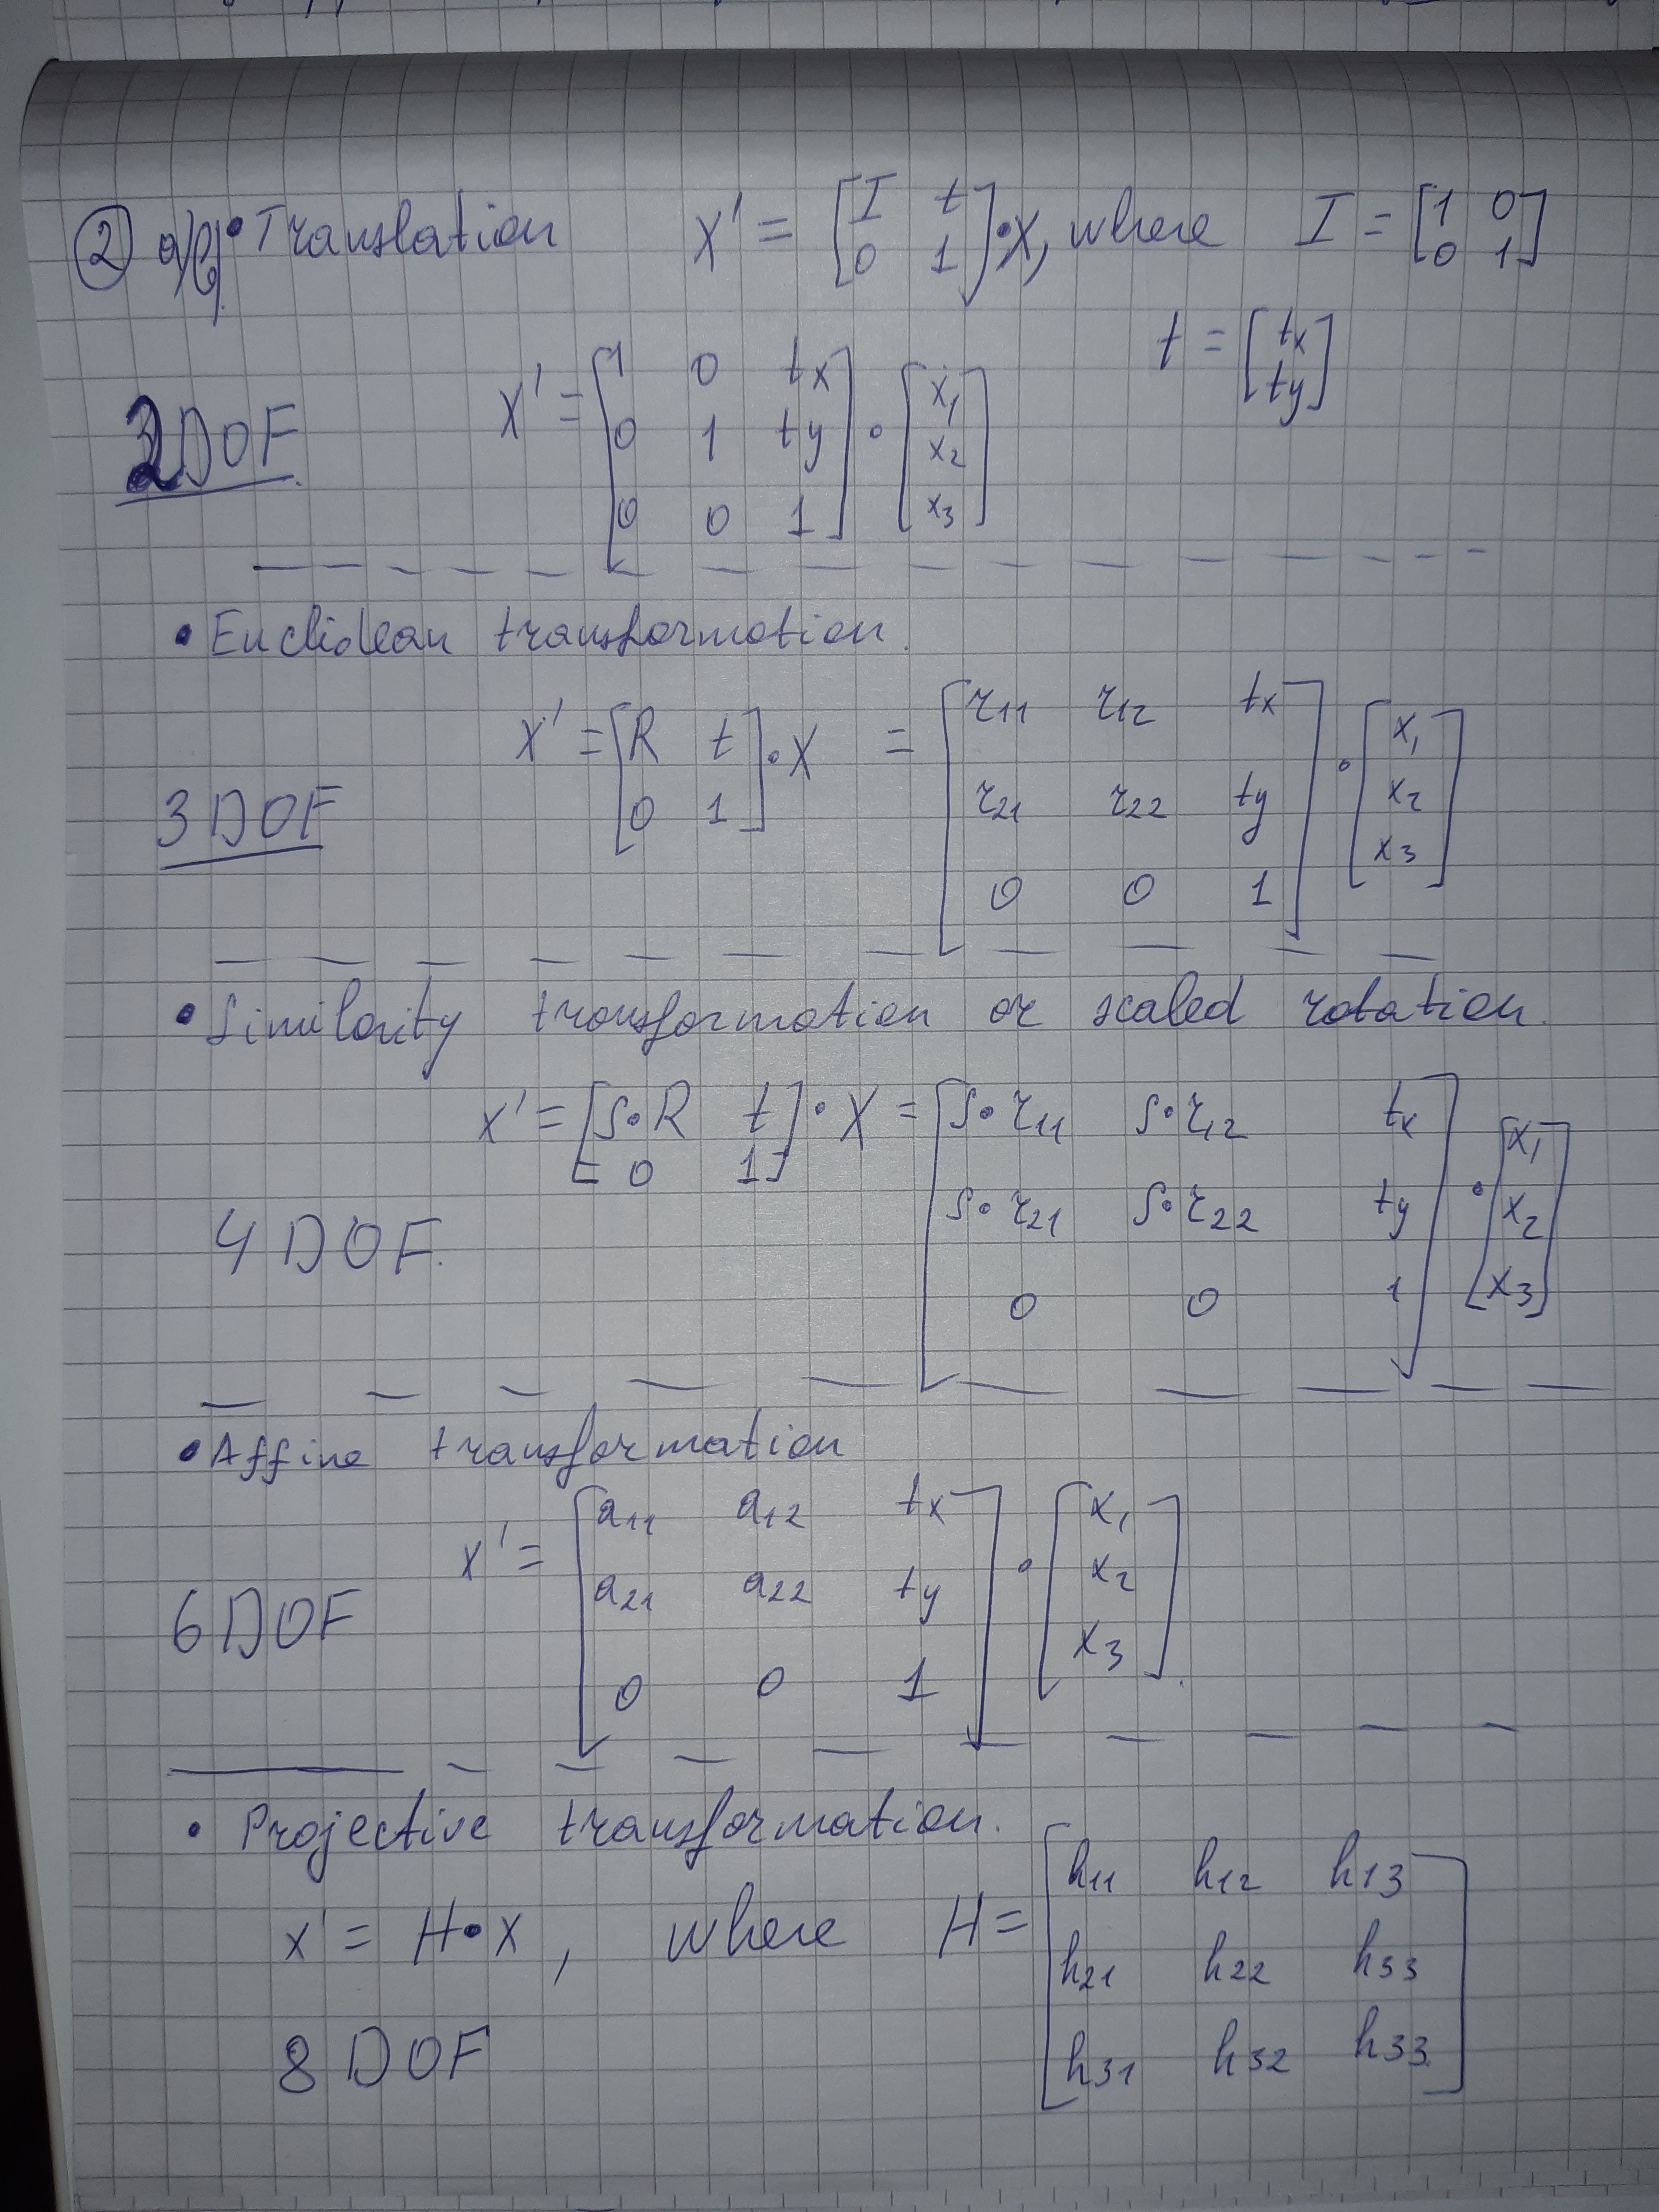 ② a/b) • Translation X' = [I t; 0 1] • X, where I = [1 0; 0 1]
t = [tx; ty]
2DOF. X' = [1 0 tx; 0 1 ty; 0 0 1] • [x1; x2; x3]
• Euclidean transformation.
3DOF X' = [R t; 0 1] • X = [r11 r12 tx; r21 r22 ty; 0 0 1] • [x1; x2; x3]
• Similarity transformation or scaled rotation.
4DOF. X' = [S•R t; 0 1] • X = [S•r11 S•r12 tx; S•r21 S•r22 ty; 0 0 1] • [x1; x2; x3]
• Affine transformation
6DOF x' = [a11 a12 tx; a21 a22 ty; 0 0 1] • [x1; x2; x3]
• Projective transformation.
x' = H•x, where H = [h11 h12 h13; h21 h22 h33; h31 h32 h33]
8DOF